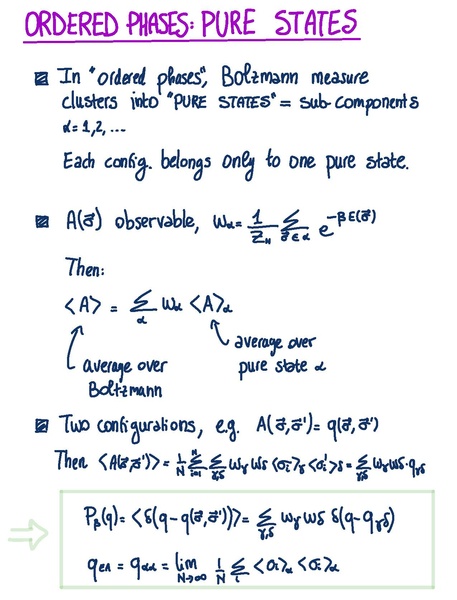 ORDERED PHASES: PURE STATES
In "ordered phases", Bolzmann measure
clusters into "PURE STATES" = sub-components
α = 1,2, ...
Each config. belongs only to one pure state.
A(σ⃗) observable, ωα = 1/Z_N Σ_{σ⃗∈α} e^{-βE(σ⃗)}
Then:
<A> = Σ_α ωα <A>α
average over pure state α
average over Boltzmann
Two configurations, e.g. A(σ⃗,σ⃗') = q(σ⃗,σ⃗')
Then <A(σ⃗,σ⃗')> = 1/N Σ_{i=1}^N Σ_{γ,δ} ωγ ωδ <σi>γ <σi'>δ = Σ_{γ,δ} ωγ ωδ · qγδ
Pβ(q) = <δ(q-q(σ⃗,σ⃗'))> = Σ_{γ,δ} ωγ ωδ δ(q-qγδ)
qEA = qαα = lim_{N→∞} 1/N Σ_i <σi>α <σi>α